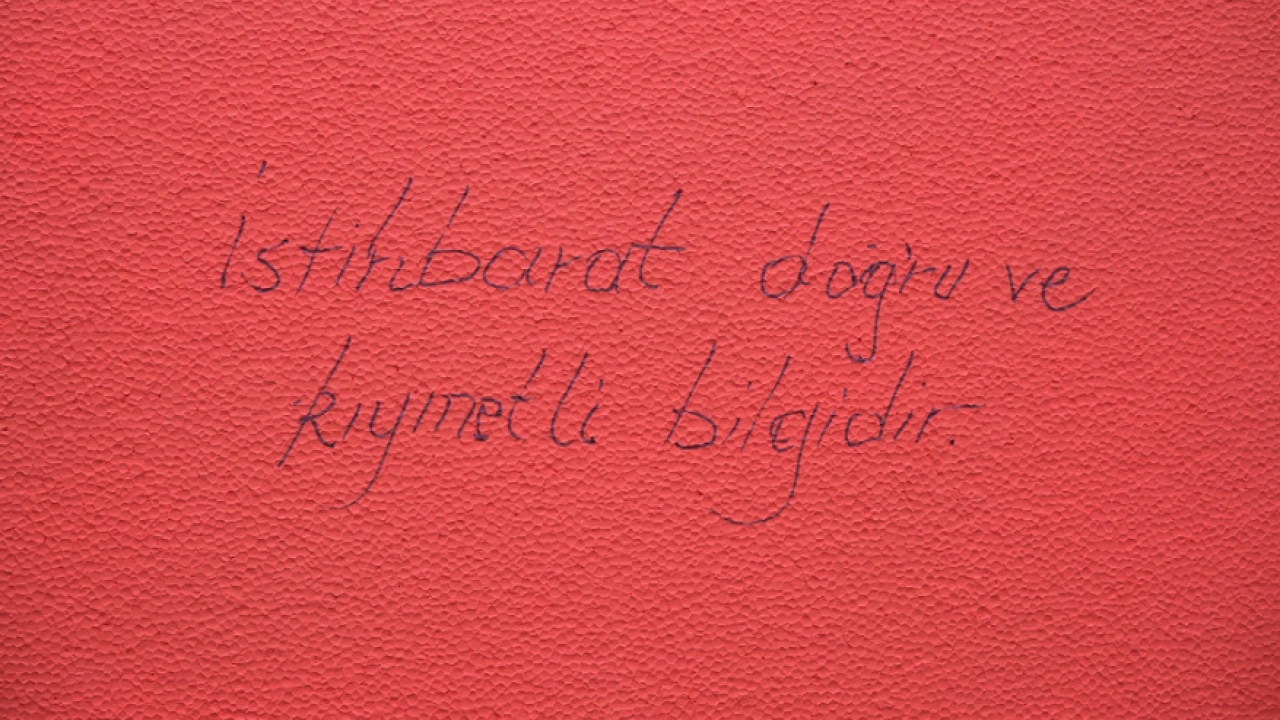 İstihbarat doğru ve
kıymetli bilgidir.